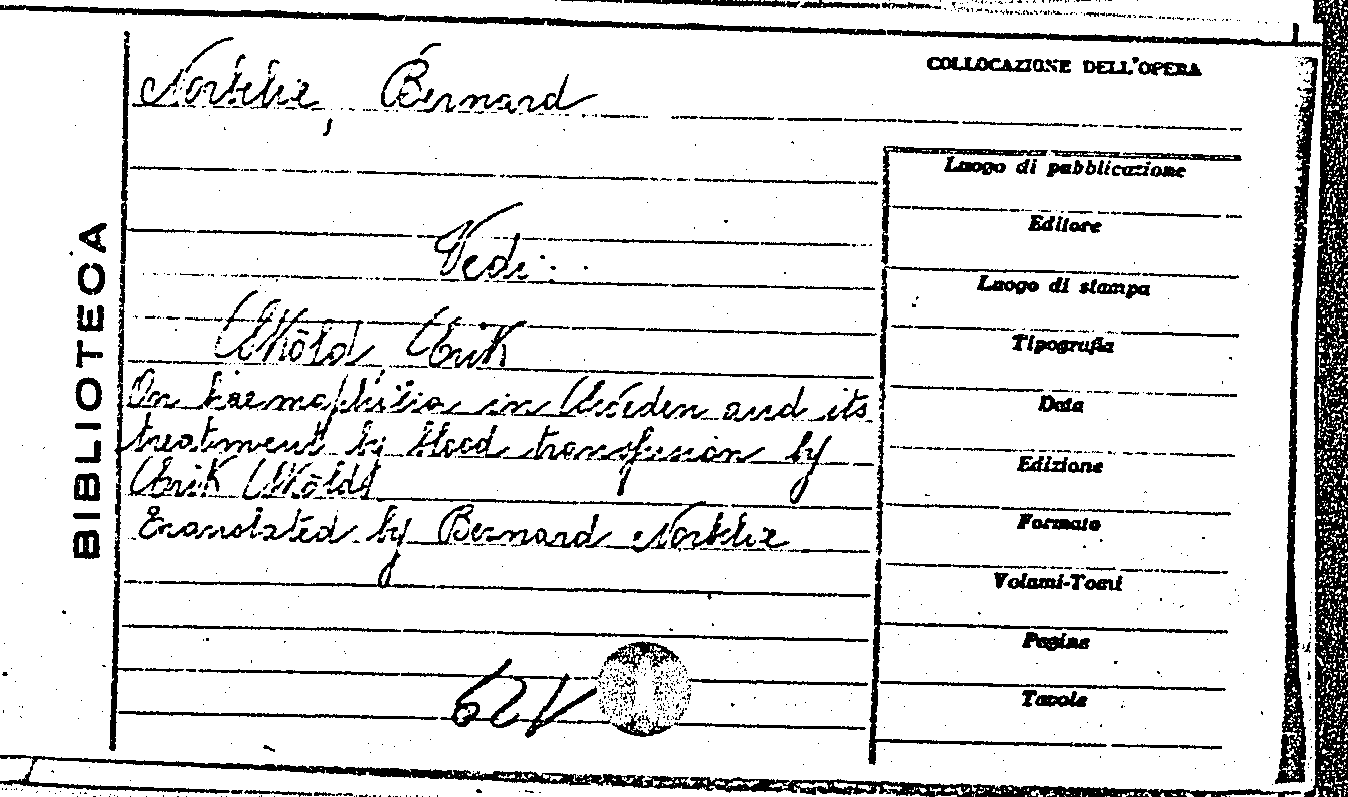 COLLOCAZIONE DELL'OPERA
Norbelie, Bernard
Vedi:
Sköld Erik
On haemophilia in Sweden and its
treatment by blood transfusion by
Erik Sköld
Translated by Bernard Norbelie
BIBLIOTECA
Luogo di pubblicazione
Editore
Luogo di stampa
Tipografia
Data
Edizione
Formato
Volumi-Tomi
Pagine
Tavole